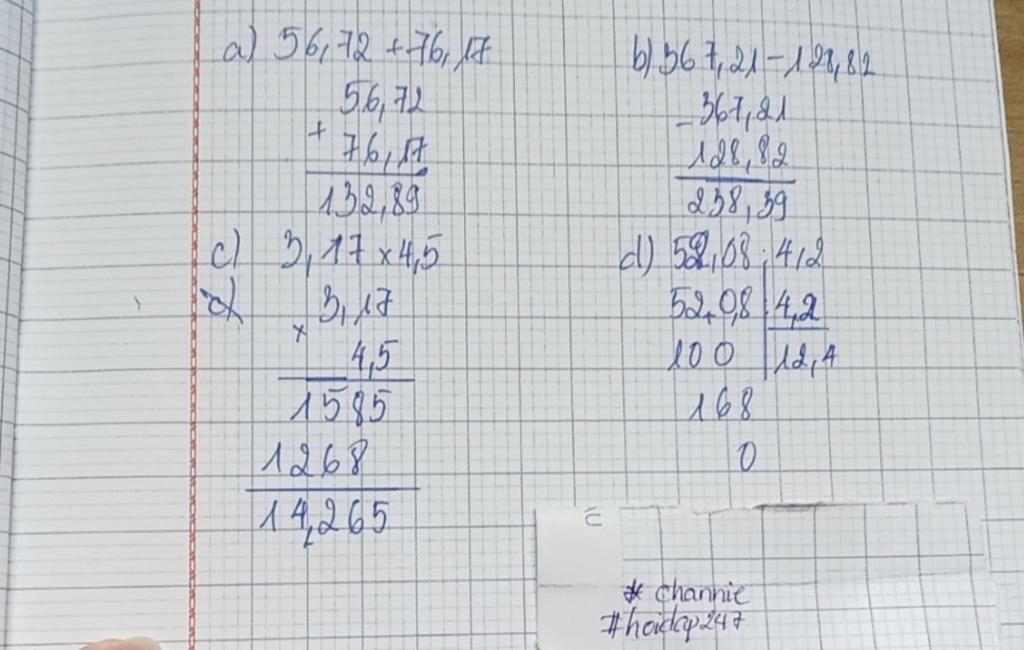 a) 56,72 + 76,17
56,72
+
76,17
132,89
b) 367,21 - 128,82
- 367,21
128,82
238,39
c) 3,17 x 4,5
3,17
x
4,5
1585
1268
14,265
d) 52,08 : 4,2
52,0,8 4,2
100 12,4
168
0
* channie
#hoidap247